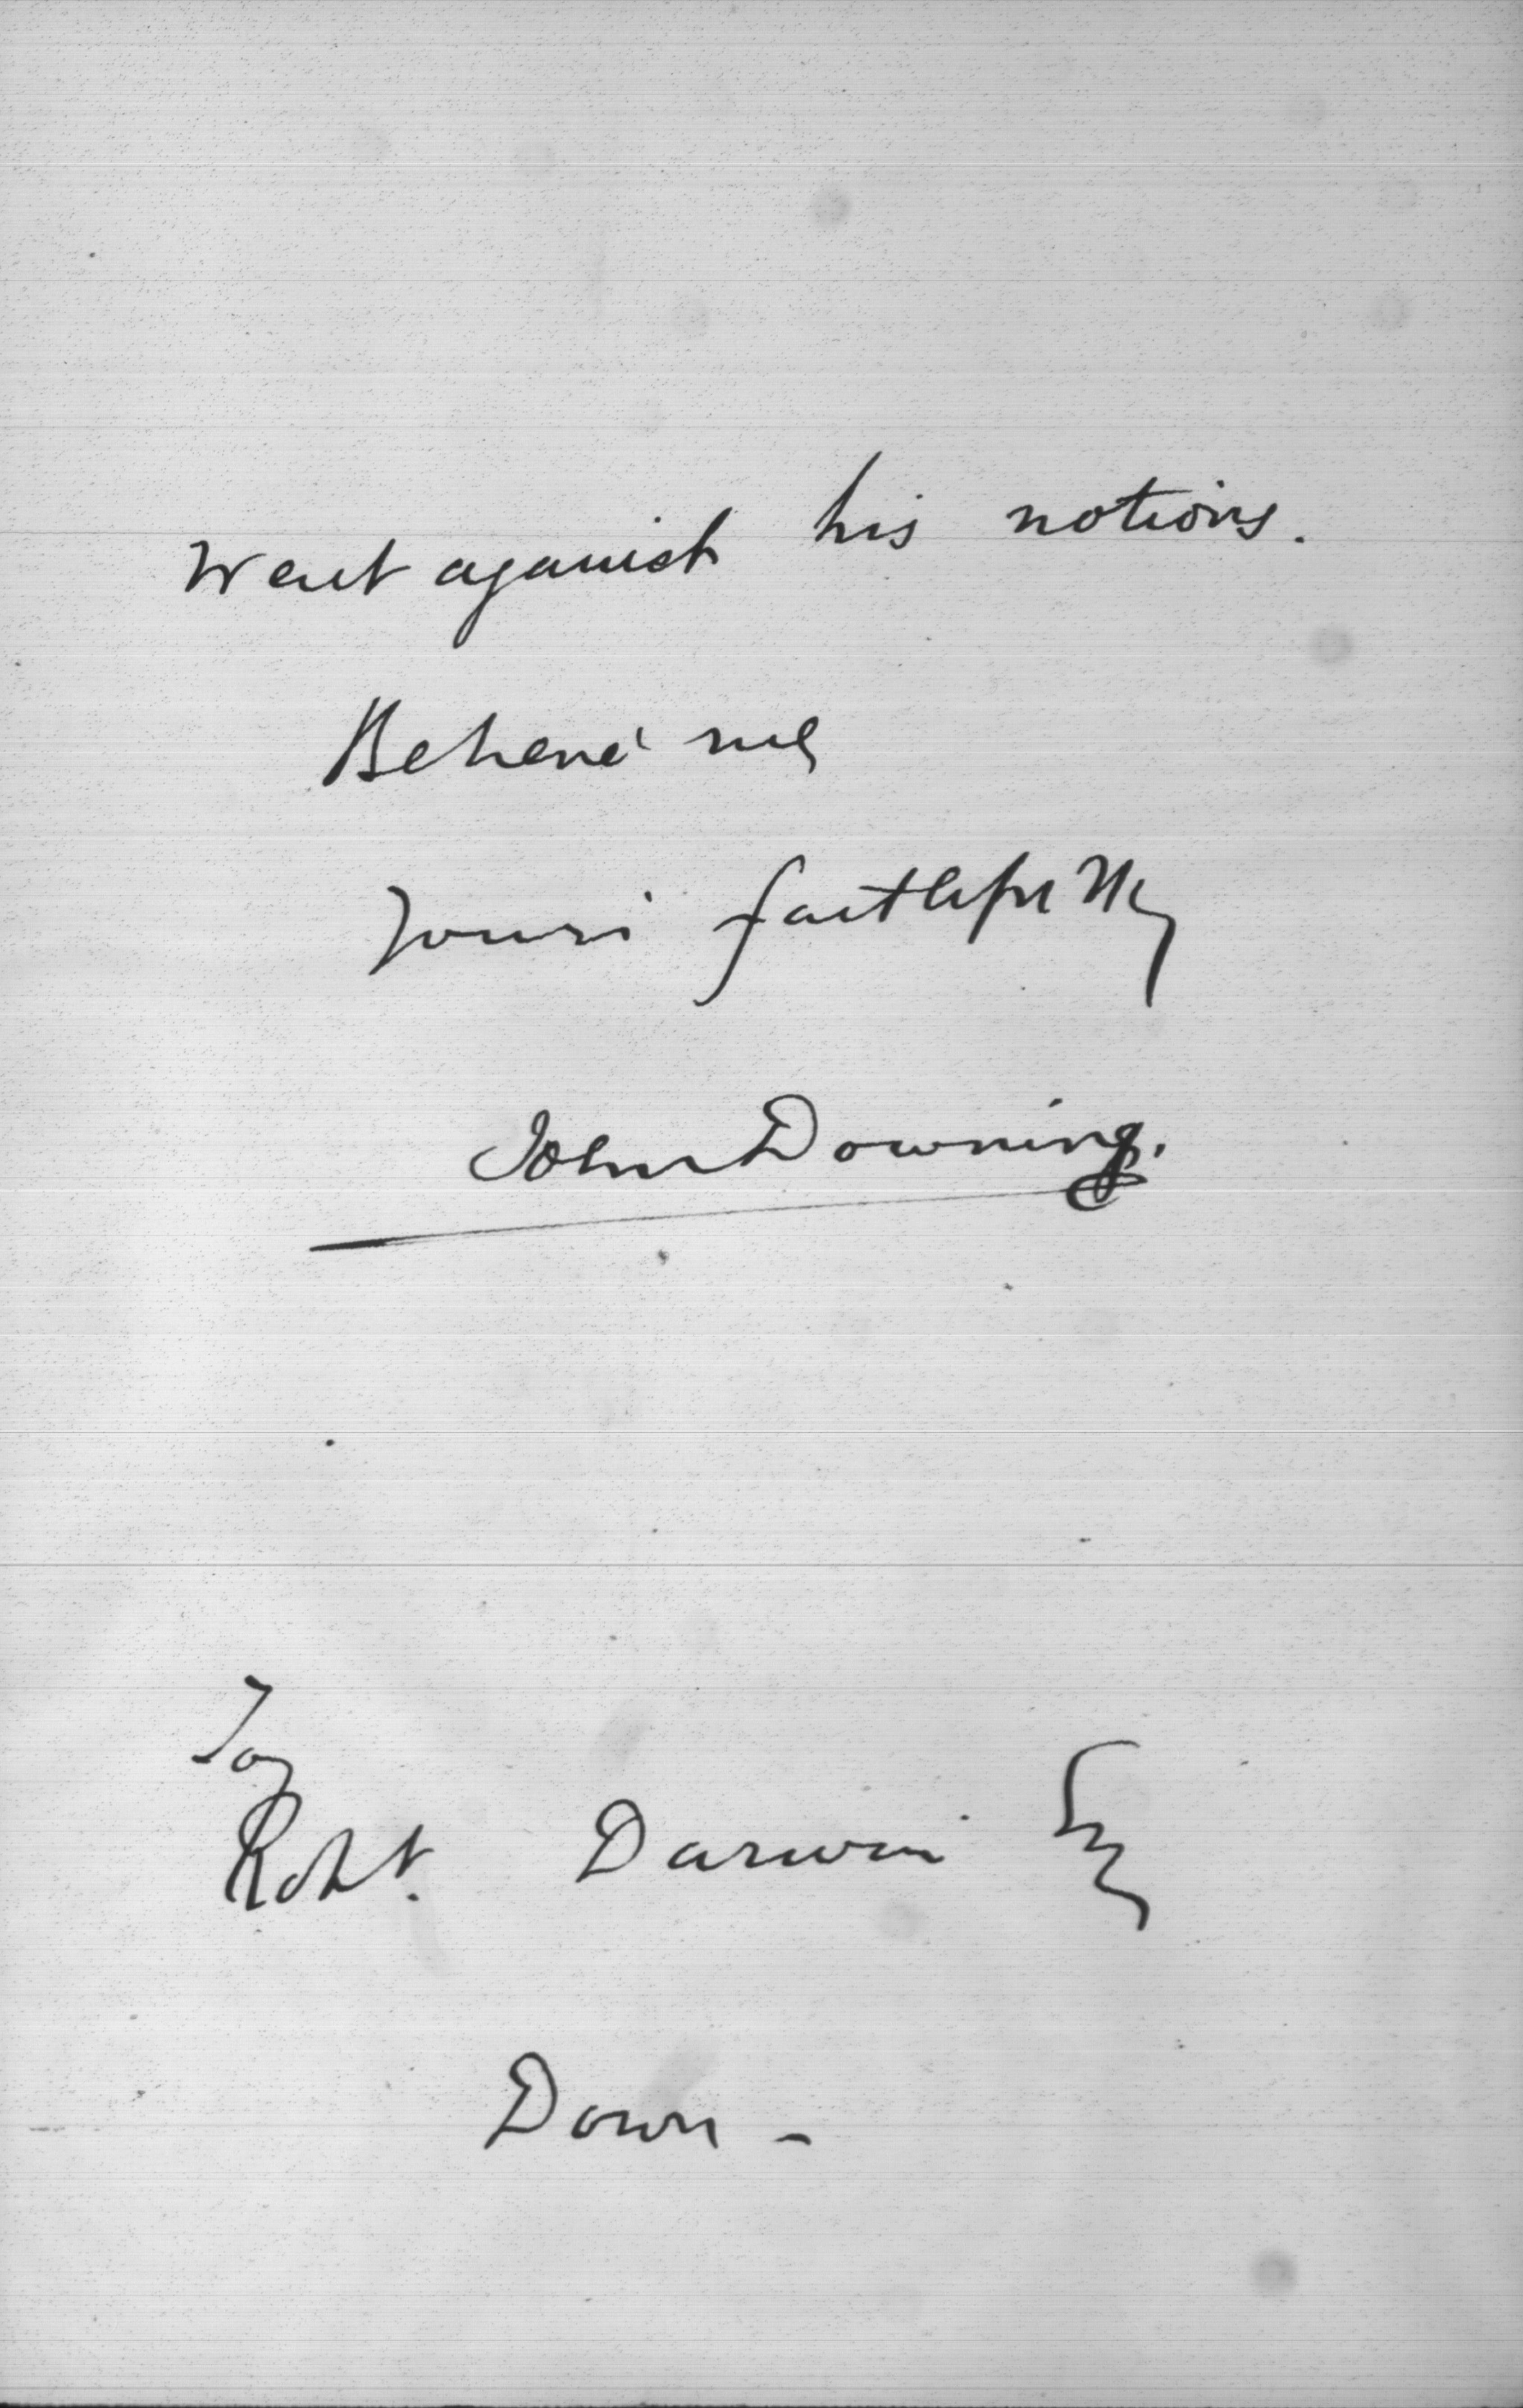 went against his notions.
Believe me
Yours faithfully
John Downing.
To
Robt. Darwin Esq
Down -